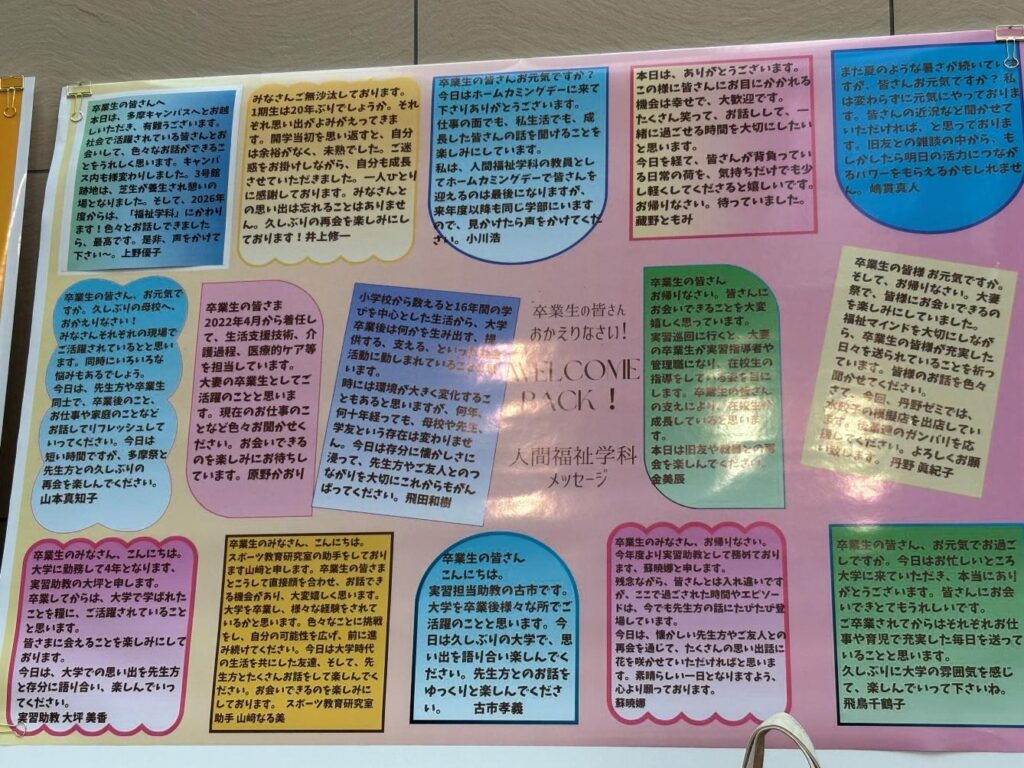 卒業生の皆さんへ
本日は、多摩キャンパスへとお越
しいただき、有難うございます。
社会で活躍されている皆さんとお
会いして、色々なお話ができるこ
とをうれしく思います。キャンパ
ス内も様変わりしました。3号館
跡地は、芝生が養生され憩いの
場となりました。そして、2026年
度からは、「福祉学科」にかわり
ます！色々とお話しできました
ら、最高です。是非、声をかけて
下さい～。上野優子
みなさんご無沙汰しております。
1期生は20年ぶりでしょうか。それ
ぞれ思い出がよみがえってきま
す。開学当初を思い返すと、自分
は余裕がなく、未熟でした。ご迷
惑をお掛けしながら、自分も成長
させていただきました。一人ひとり
に感謝しております。みなさんと
の思い出は忘れることはありませ
ん。久しぶりの再会を楽しみにし
ております！井上修一
卒業生の皆さんお元気ですか？
今日はホームカミングデーに来て
下さりありがとうございます。
仕事の面でも、私生活でも、成
長した皆さんの話を聞けることを
楽しみにしています。
私は、人間福祉学科の教員とし
てホームカミングデーで皆さんを
迎えるのは最後になりますが、
来年度以降も同じ学部にいます
ので、見かけたら声をかけてくだ
さい。小川浩
本日は、ありがとうございます。
この様に皆さんにお目にかかれる
機会は幸せで、大歓迎です。
たくさん笑って、お話しして、一
緒に過ごせる時間を大切にしたい
と思います。
今日を経て、皆さんが背負ってい
る日常の荷を、気持ちだけでも少
し軽くしてくださると嬉しいです。
お帰りなさい。待っていました。
藏野ともみ
まだ夏のような暑さが続いていま
すが、皆さんお元気ですか？ 私
は変わらずに元気にやっておりま
す。皆さんの近況など聞かせて
いただければ、と思っておりま
す。旧友との雑談の中から、も
しかしたら明日の活力につなが
るパワーをもらえるかもしれませ
ん。嶋貫真人
卒業生の皆さん、お元気で
すか。久しぶりの母校へ、
おかえりなさい！
みなさんそれぞれの現場で
ご活躍されていると思いま
す。同時にいろいろな
悩みもあるでしょう。
今日は、先生方や卒業生
同士で、卒業後のこと、
お仕事や家庭のことなど
お話してリフレッシュして
いってください。今日は
短い時間ですが、多摩祭と
先生方との久しぶりの
再会を楽しんでください。
山本真知子
卒業生の皆さま
2022年4月から着任し
て、生活支援技術、介
護過程、医療的ケア等
を担当しています。
大妻の卒業生としてご
活躍のことと思いま
す。現在のお仕事のこ
となど色々お聞かせく
ださい。お会いできる
のを楽しみにお待ちし
ています。原野かおり
小学校から数えると16年間の学
びを中心とした生活から、大学
卒業後は何かを生み出す、提
供する、支える、といった
活動に勤しまれていることと思い
ます。
時には環境が大きく変化するこ
ともあると思いますが、何年、
何十年経っても、母校や先生、
学友という存在は変わりませ
ん。今日は存分に懐かしさに
浸って、先生方やご友人とのつ
ながりを大切にこれからもがん
ばってください。飛田和樹
卒業生の皆さん
おかえりなさい！
WELCOME
BACK！
人間福祉学科
メッセージ
卒業生の皆さん
お帰りなさい。皆さんに
お会いできることを大変
嬉しく思っています。
実習巡回に行くと、大妻
の卒業生が実習指導者や
管理職になり、在校生の
指導をしている姿を目に
します。卒業生の皆さん
の支えにより、在校生が
成長していると思いま
す。
本日は旧友や教員との再
会を楽しんでください。
金美辰
卒業生の皆様 お元気ですか。
そして、お帰りなさい。大妻
祭で、皆様にお会いできるの
を楽しみにしていました。
福祉マインドを大切にしなが
ら、卒業生の皆様が充実した
日々を送られていることを祈っ
ています。皆様のお話を色々
聞かせてください。
さて、今回、丹野ゼミでは、
水餃子の模擬店を出店してい
ます。後輩達のガンバリを応
援してください。よろしくお願
い致します。丹野 眞紀子
卒業生のみなさん、こんにちは。
大学に勤務して4年となります、
実習助教の大坪と申します。
卒業してからは、大学で学ばれた
ことを糧に、ご活躍されていること
と思います。
皆さまに会えることを楽しみにして
おります。
今日は、大学での思い出を先生方
と存分に語り合い、楽しんでいっ
てください。
実習助教 大坪 美香
卒業生のみなさん、こんにちは。
スポーツ教育研究室の助手をしており
ます山﨑と申します。卒業生の皆さま
とこうして直接顔を合わせ、お話できる
機会があり、大変嬉しく思います。
大学を卒業し、様々な経験をされて
いるかと思います。色々なことに挑戦
をし、自分の可能性を広げ、前に進
み続けてください。今日は大学時代
の生活を共にした友達、そして、先生
方とたくさんお話をして楽しんでくだ
さい。お会いできるのを楽しみにし
ております。 スポーツ教育研究室
助手 山﨑なる美
卒業生の皆さん
こんにちは。
実習担当助教の古市です。
大学を卒業後様々な所でご
活躍のことと思います。今
日は久しぶりの大学で、思
い出を語り合い楽しんでく
ださい。先生方とのお話を
ゆっくりと楽しんでくださ
い。 古市孝義
卒業生のみなさん、お帰りなさい。
今年度より実習助教として務めており
ます、蘇暁娜と申します。
残念ながら、皆さんとは入れ違いです
が、ここで過ごされた時間やエピソー
ドは、今でも先生方の話にたびたび登
場しています。
今日は、懐かしい先生方やご友人との
再会を通じて、たくさんの思い出話に
花を咲かせていただければと思いま
す。素晴らしい一日となりますよう、
心より願っております。
蘇暁娜
卒業生の皆さん、お元気でお過ご
しですか。今日はお忙しいところ
大学に来ていただき、本当にあり
がとうございます。皆さんにお会
いできてとてもうれしいです。
ご卒業されてからはそれぞれお仕
事や育児で充実した毎日を送って
いることと思います。
久しぶりに大学の雰囲気を感じ
て、楽しんでいって下さいね。
飛鳥千鶴子